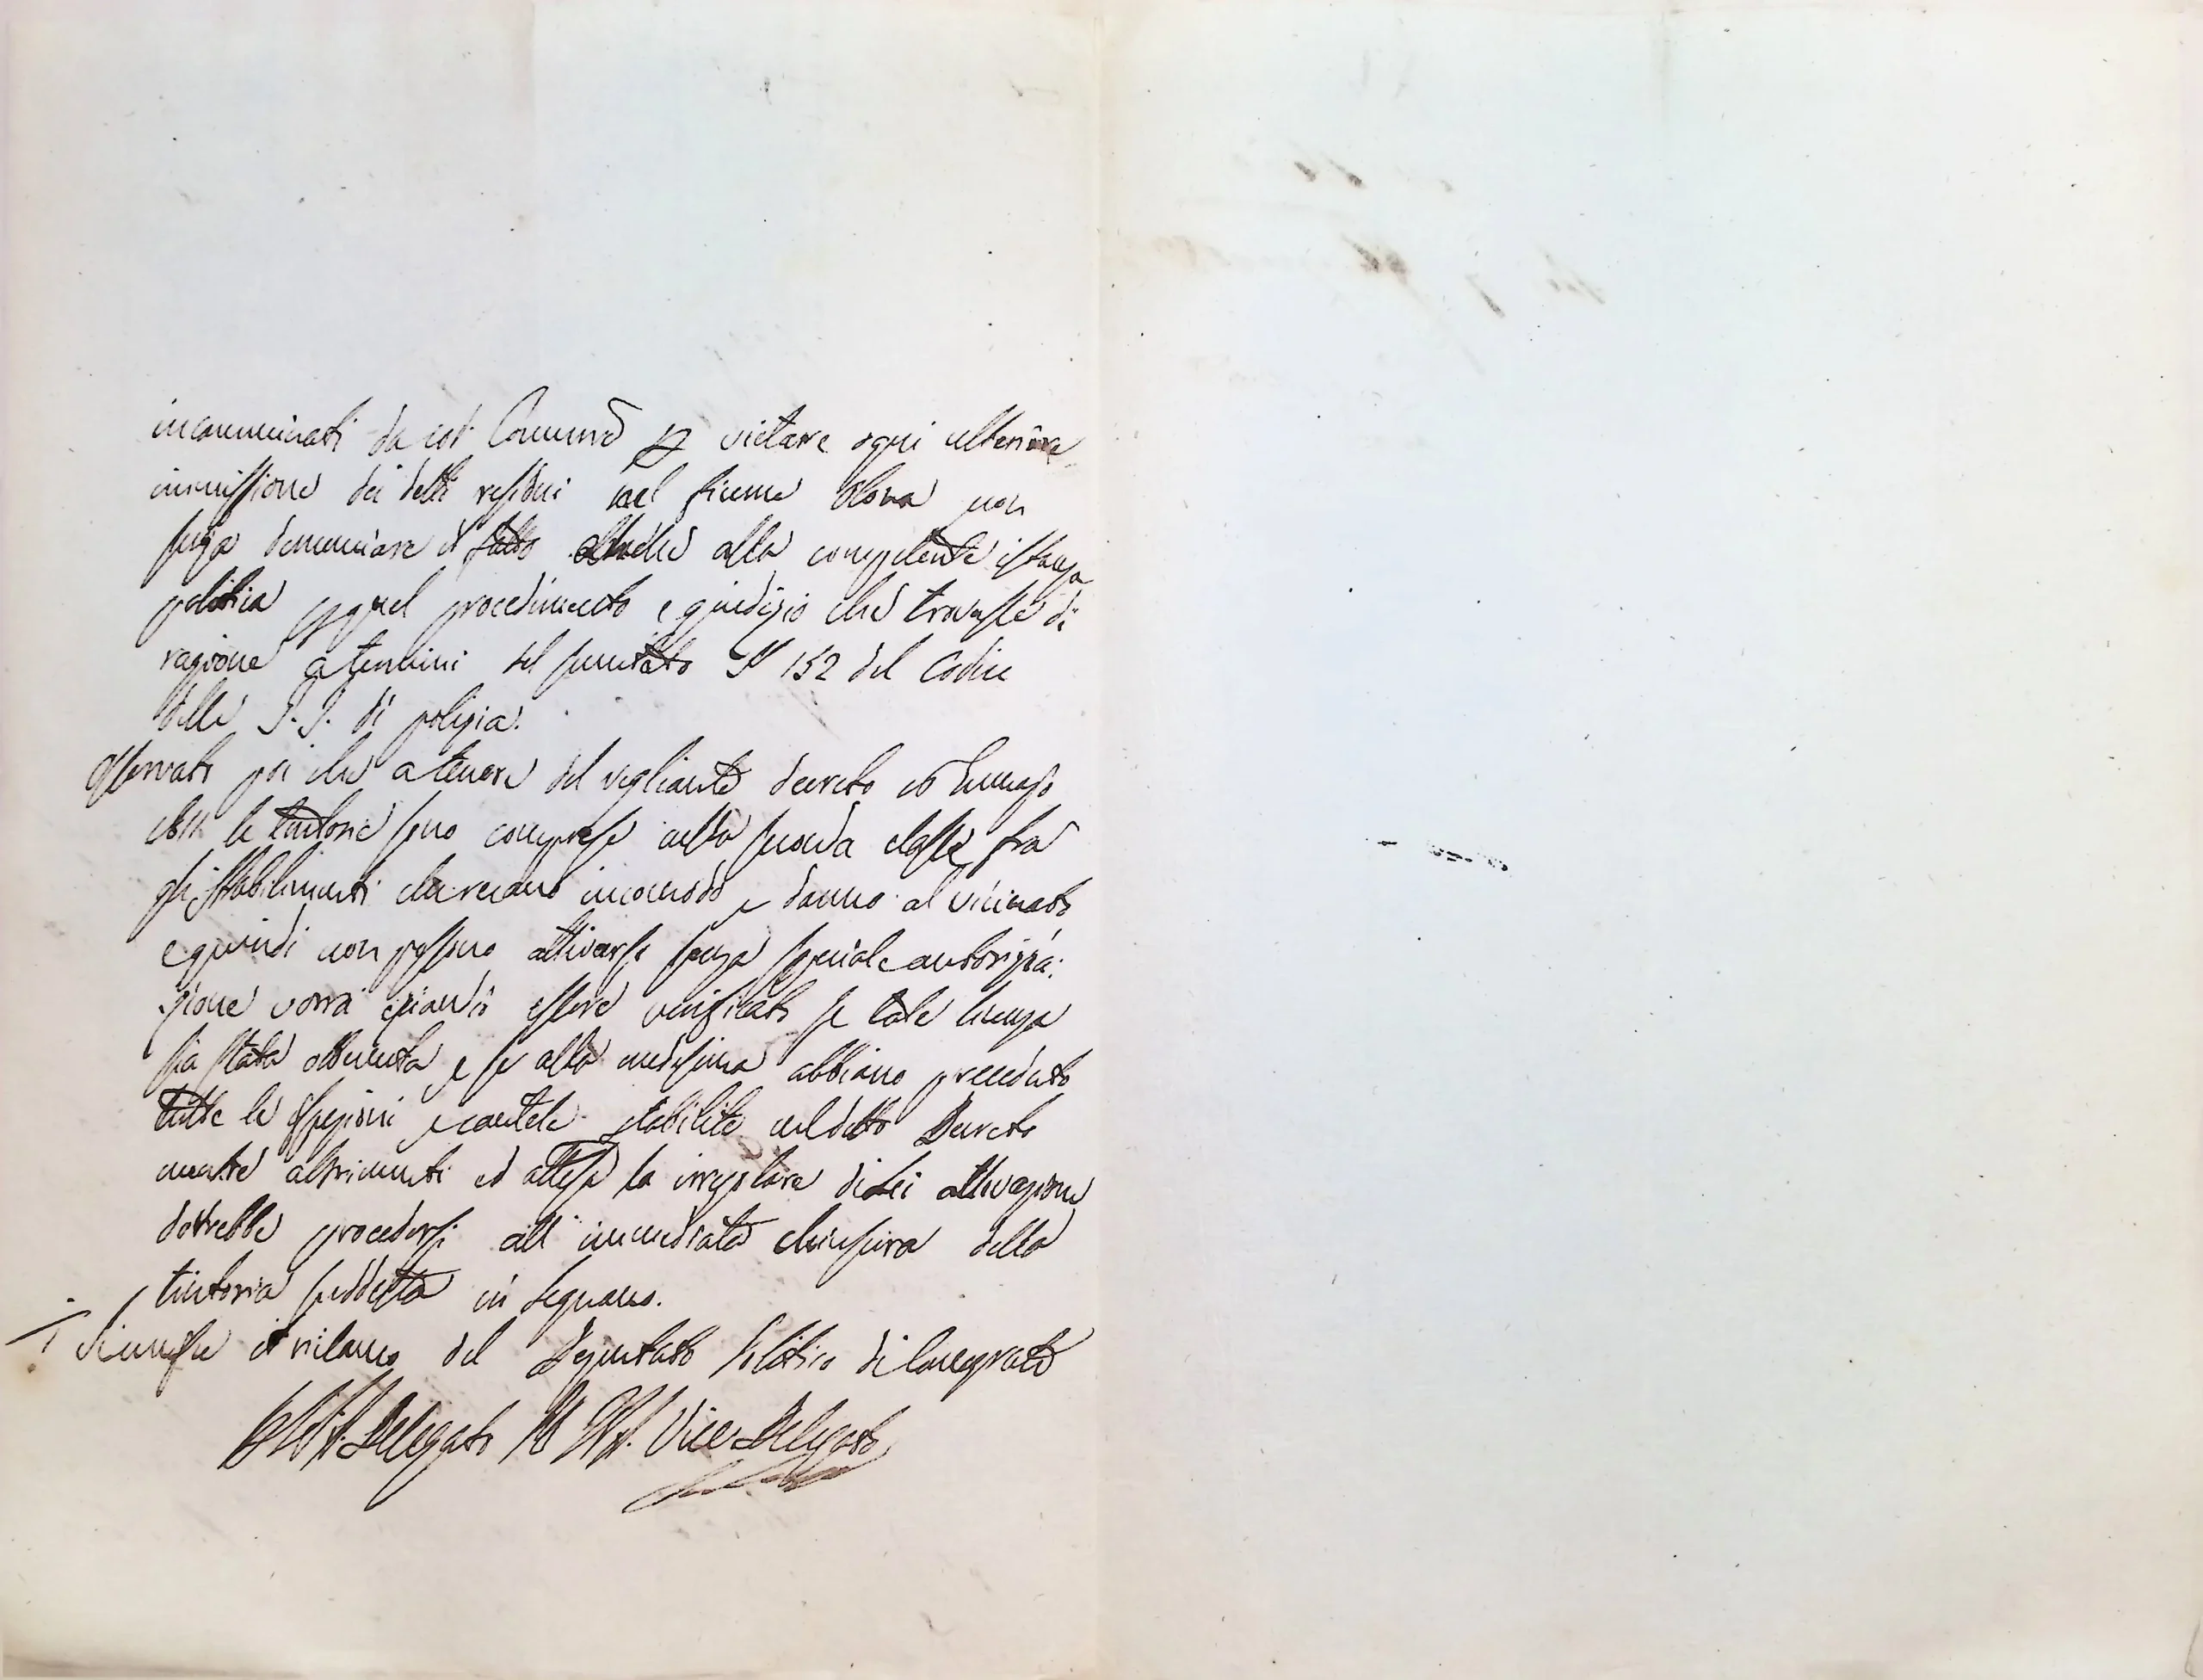 incamminati da cot. Comune p vietare ogni ulteriore
immissione dei detti residui nel fiume Olona non
senza denunciare il fatto altresì alla competente istanza
politica pel procedimento e giudizio che trovasse di
ragione a termini del succitato § 152 del Codice
delle I. I. di polizia.
Osservato poi che a tenore del vegliante decreto
le tintorie sono comprese nella seconda classe fra
gli stabilimenti che recano incomodo e danno al vicinato
e quindi non possono attivarsi senza speciale autorizza:
zione vorrà eziandio essere verificato se tale licenza
sia stata ottenuta e se alla medesima abbiano preceduto
tutte le ispezioni e cautele stabilite nel detto Decreto
mentre altrimenti ed attesa la irregolare di Lei attivazione
dovrebbe procedersi all'immediata chiusura della
tintoria suddetta in Legnano.
il rilievo del Deputato Politico di Lonegnato
Delegato Vice Delegato